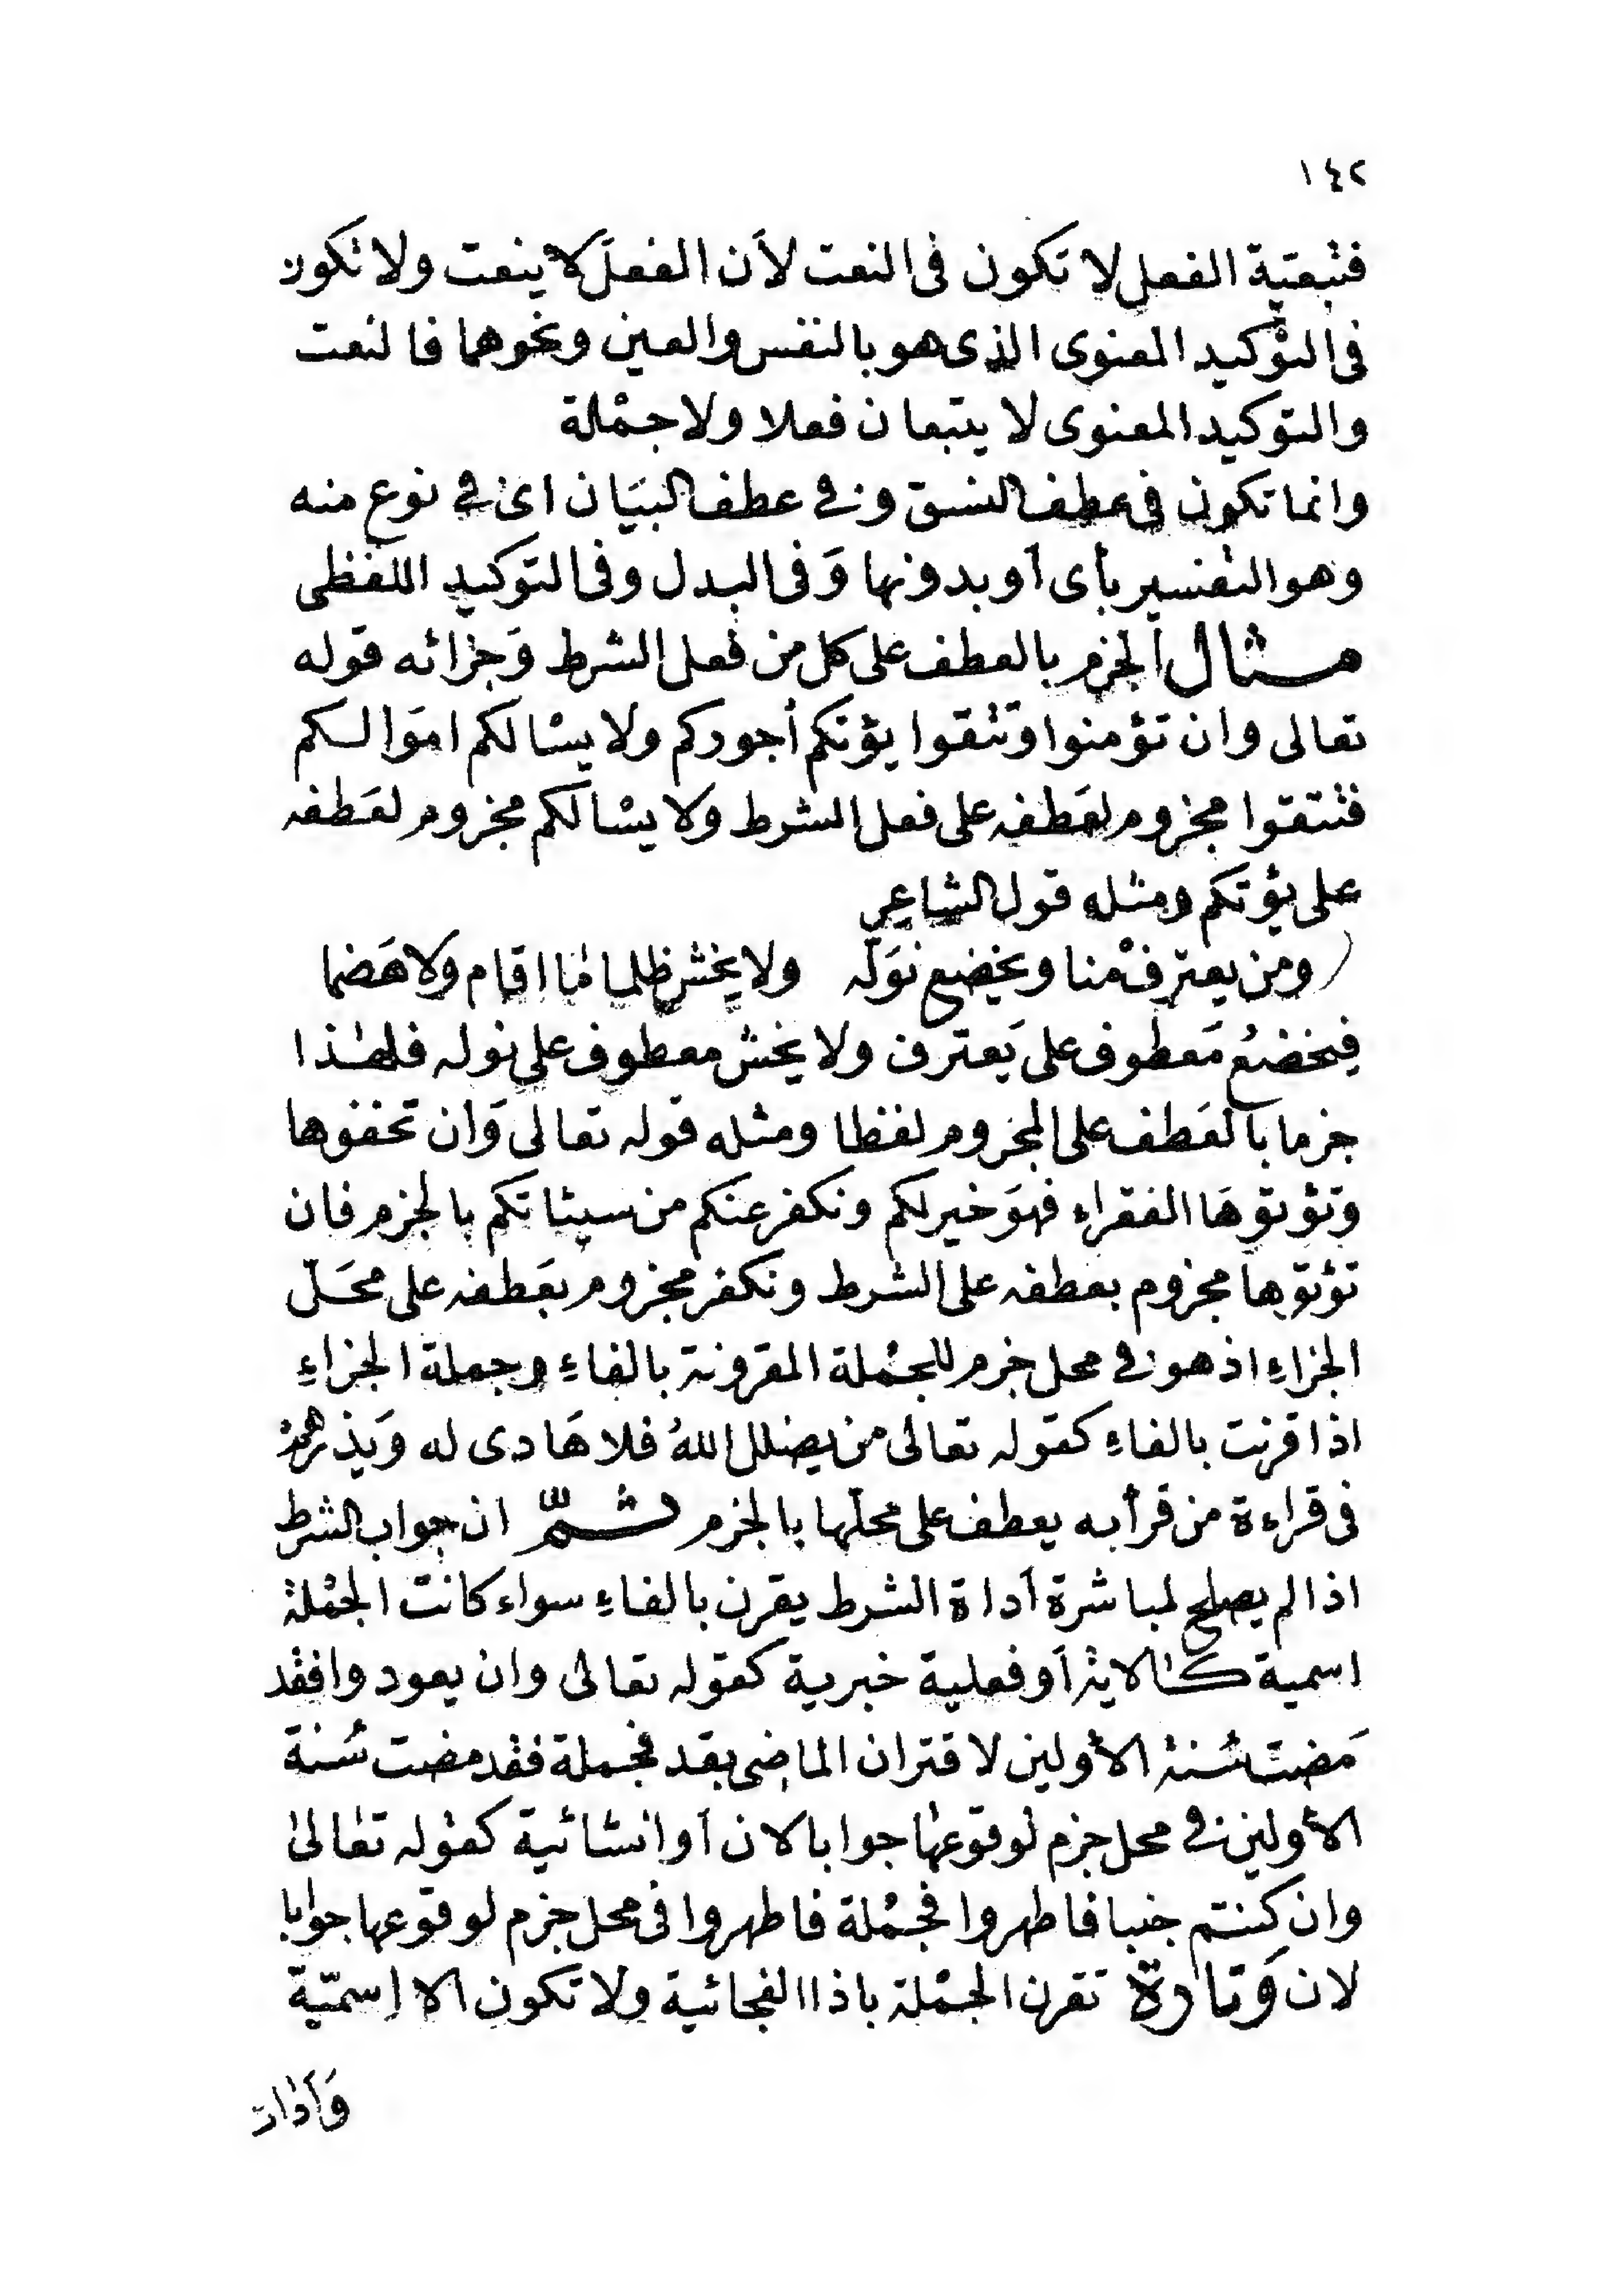 ١٤٢
فتبعية الفعل لا تكون فى النعت لأن الفعل لا ينعت ولا تكون
فى التوكيد المعنوى الذى هو بالنفس والعين ونحوهما فالنعت
والتوكيد المعنوى لا يتبعان فعلا ولا جملة
وانما تكون فى عطف النسق وفى عطف البيان اى فى نوع منه
وهو التفسير بأى أو بدونها وفى البدل وفى التوكيد اللفظى
مثال الجزم بالعطف على كل من فعل الشرط وجزائه قوله
تعالى وان تؤمنوا وتتقوا يؤتكم أجوركم ولا يسالكم اموالكم
فتتقوا مجزوم لعطفه على فعل الشرط ولا يسالكم مجزوم لعطفه
على يؤتكم ومثله قول الشاعر
ومن يعترف منا ويخضع نوله ولا يخش ظلما ما اقام ولا هضما
فيخضع معطوف على يعترف ولا يخش معطوف على نوله فلهذا
جزما بالعطف على المجزوم لفظا ومثله قوله تعالى وان تخفوها
وتؤتوها الفقراء فهو خير لكم ونكفر عنكم من سيئاتكم بالجزم فان
تؤتوها مجزوم بعطفه على الشرط ونكفر مجزوم بعطفه على محل
الجزاء اذ هو فى محل جزم للجملة المقرونة بالفاء وجملة الجزاء
اذا قرنت بالفاء كقوله تعالى من يضلل الله فلا هادى له ويذرهم
فى قراءة من قرأ به يعطف على محلها بالجزم ثم ان جواب الشرط
اذا لم يصلح لمباشرة أداة الشرط يقرن بالفاء سواء كانت الجملة
اسمية كالاية أو فعلية خبرية كقوله تعالى وان يعودوا فقد
مضت سنة الأولين لاقتران الماضى بقد فجملة فقد مضت سنة
الأولين فى محل جزم لوقوعها جوابا لان أو انشائية كقوله تعالى
وان كنتم جنبا فاطهروا فجملة فاطهروا فى محل جزم لوقوعها جوابا
لان وتارة تقرن الجملة باذا الفجائية ولا تكون الا اسمية
وأدات